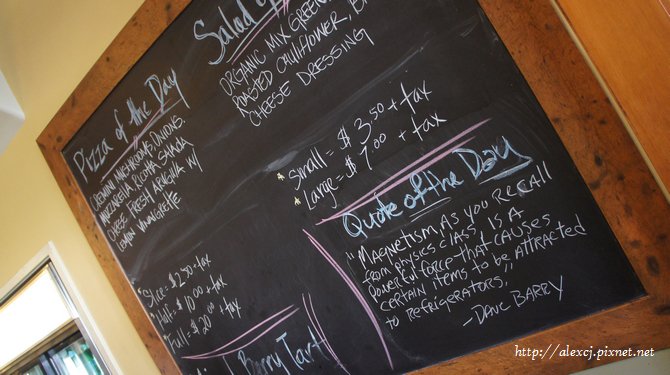 Pizza of the Day
CREMINI MUSHROOMS, ONIONS,
MOZZARELLA, RICOTTA SALADA
CHEESE FRESH ARUGULA W/
LEMON VINAIGRETTE
*Slice = $2.50 + tax
*Half = $10.00 + tax
*Full = $20.00 + tax
Berry Tart
Salad of
ORGANIC MIX GREEN
ROASTED CAULIFLOWER,
CHEESE DRESSING
* Small = $3.50 + tax
* Large = $7.00 + tax
Quote of the Day
"MAGNETISM, AS YOU RECALL
FROM PHYSICS CLASS, IS A
POWERFUL FORCE THAT CAUSES
CERTAIN ITEMS TO BE ATTRACTED
TO REFRIGERATORS."
- DAVE BARRY
http://alexcj.pixnet.net